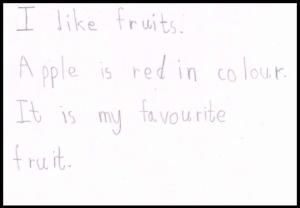 I like fruits.
Apple is red in colour.
It is my favourite
fruit.